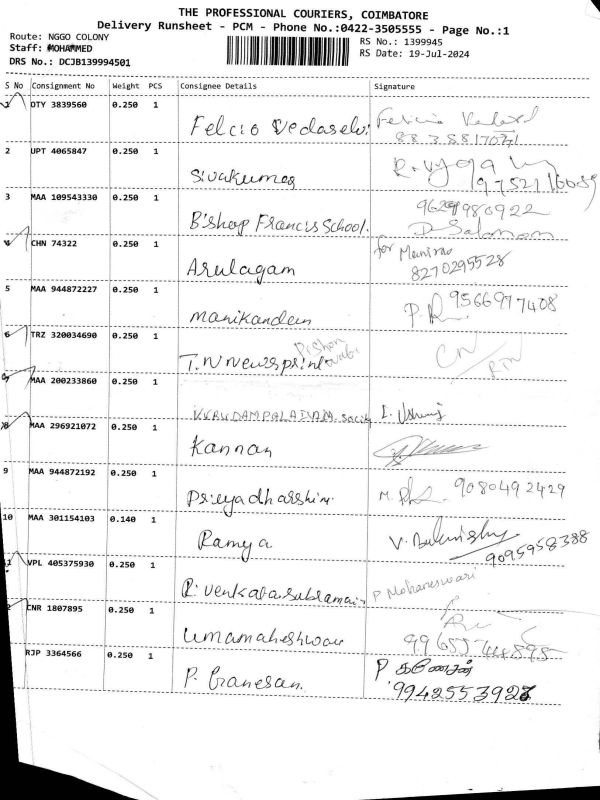 THE PROFESSIONAL COURIERS, COIMBATORE
Delivery Runsheet - PCM - Phone No.:0422-3505555 - Page No.:1
Route: NGGO COLONY
RS No.: 1399945
Staff: MOHAMMED
RS Date: 19-Jul-2024
DRS No.: DCJB139994501
S No Consignment No Weight PCS Consignee Details Signature
1 OTY 3839560 0.250 1 Felcio Vedaselvi
2 UPT 4065847 0.250 1 Sivakumar
3 MAA 109543330 0.250 1 Bishop Francis School. 9629980922
D Salomon
4 CHN 74322 0.250 1 Arulagam for Munirao
8270295528
5 MAA 944872227 0.250 1 manikandan P. 9566977408
6 TRZ 320034690 0.250 1 T.N Newsprint
7 MAA 200233860 0.250 1
8 MAA 296921072 0.250 1 Kannan
9 MAA 944872192 0.250 1 Priyadharshini M. 9080492429
10 MAA 301154103 0.140 1 Ramya V.
9095958388
VPL 405375930 0.250 1 R. Venkatasubramani P Mohaneswari
CNR 1807895 0.250 1 Umamaheshwari
RJP 3364566 0.250 1 P. Ganesan P கணேசன்